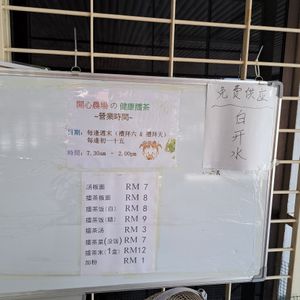 開心農場の健康擂茶
~營業時間~
日期: 每逢週末 (禮拜六 & 禮拜天)
每逢初一十五
時間: 7.30am - 2.00pm
免费供应
白
开
水
汤板面 RM 7
擂茶板面 RM 8
擂茶饭 (白) RM 8
擂茶饭 (糙) RM 9
擂茶汤 RM 3
擂茶菜 (没饭) RM 7
擂茶末 (1盒) RM12
加粉 RM 1